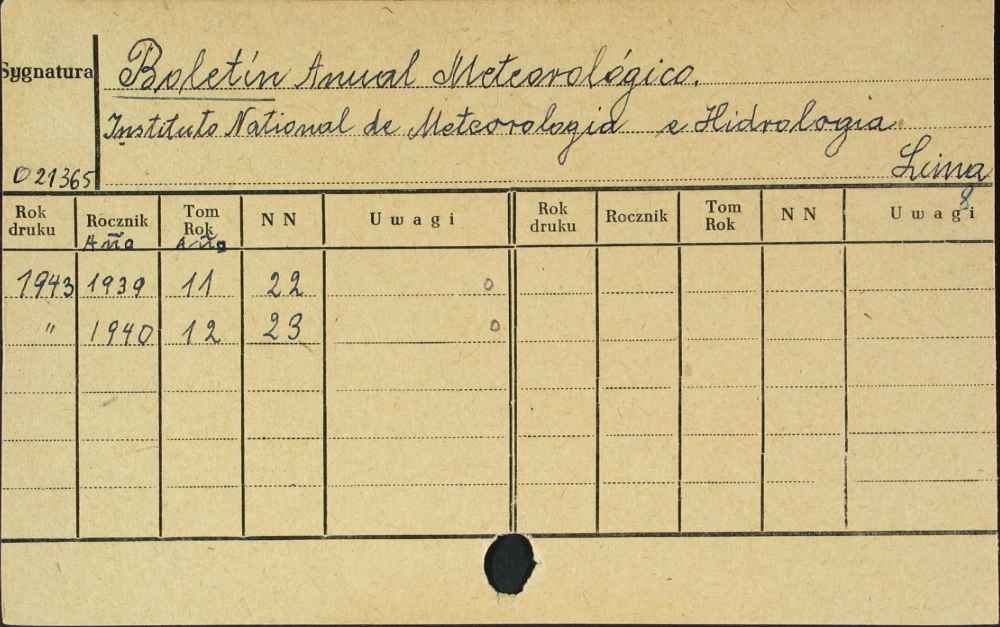 Sygnatura
Boletín Anual Meteorológico.
Instituto National de Meteorologia e Hidrologia
Lima
021365
8
Rok druku Rocznik Tom Rok N N Uwagi Rok druku Rocznik Tom Rok N N Uwagi
Año Año
1943 1939 11 22 0
" 1940 12 23 0